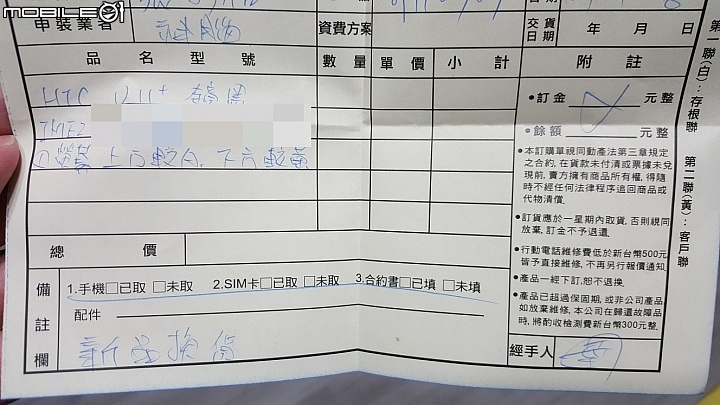 MOBILE01
申裝業者
資費方案
交貨日期 年 月 日
品名型號 數量 單價 小計 附註
HTC U11+
IMEI
①螢幕上方較白,下方較黃
•訂金 元整
•餘額 元整
•本訂購單視同動產法第三章規定
之合約,在貨款未付清或票據未兌
現前,賣方擁有商品所有權,得隨
時不經任何法律程序追回商品或
代物清償.
•訂貨應於一星期內取貨,否則視同
放棄,訂金不予退還.
•行動電話維修費低於新台幣500元
皆予直接維修,不再另行報價通知.
•產品一經下訂,恕不退換.
•產品已超過保固期,或非公司產品
如放棄維修,本公司在歸還故障品
時,將酌收檢測費新台幣300元整.
總價
備註欄
1.手機□已取 □未取 2.SIM卡□已取 □未取 3.合約書□已填 □未填
配件
新品換貨
經手人
第一聯(白):存根聯 第二聯(黃):客戶聯